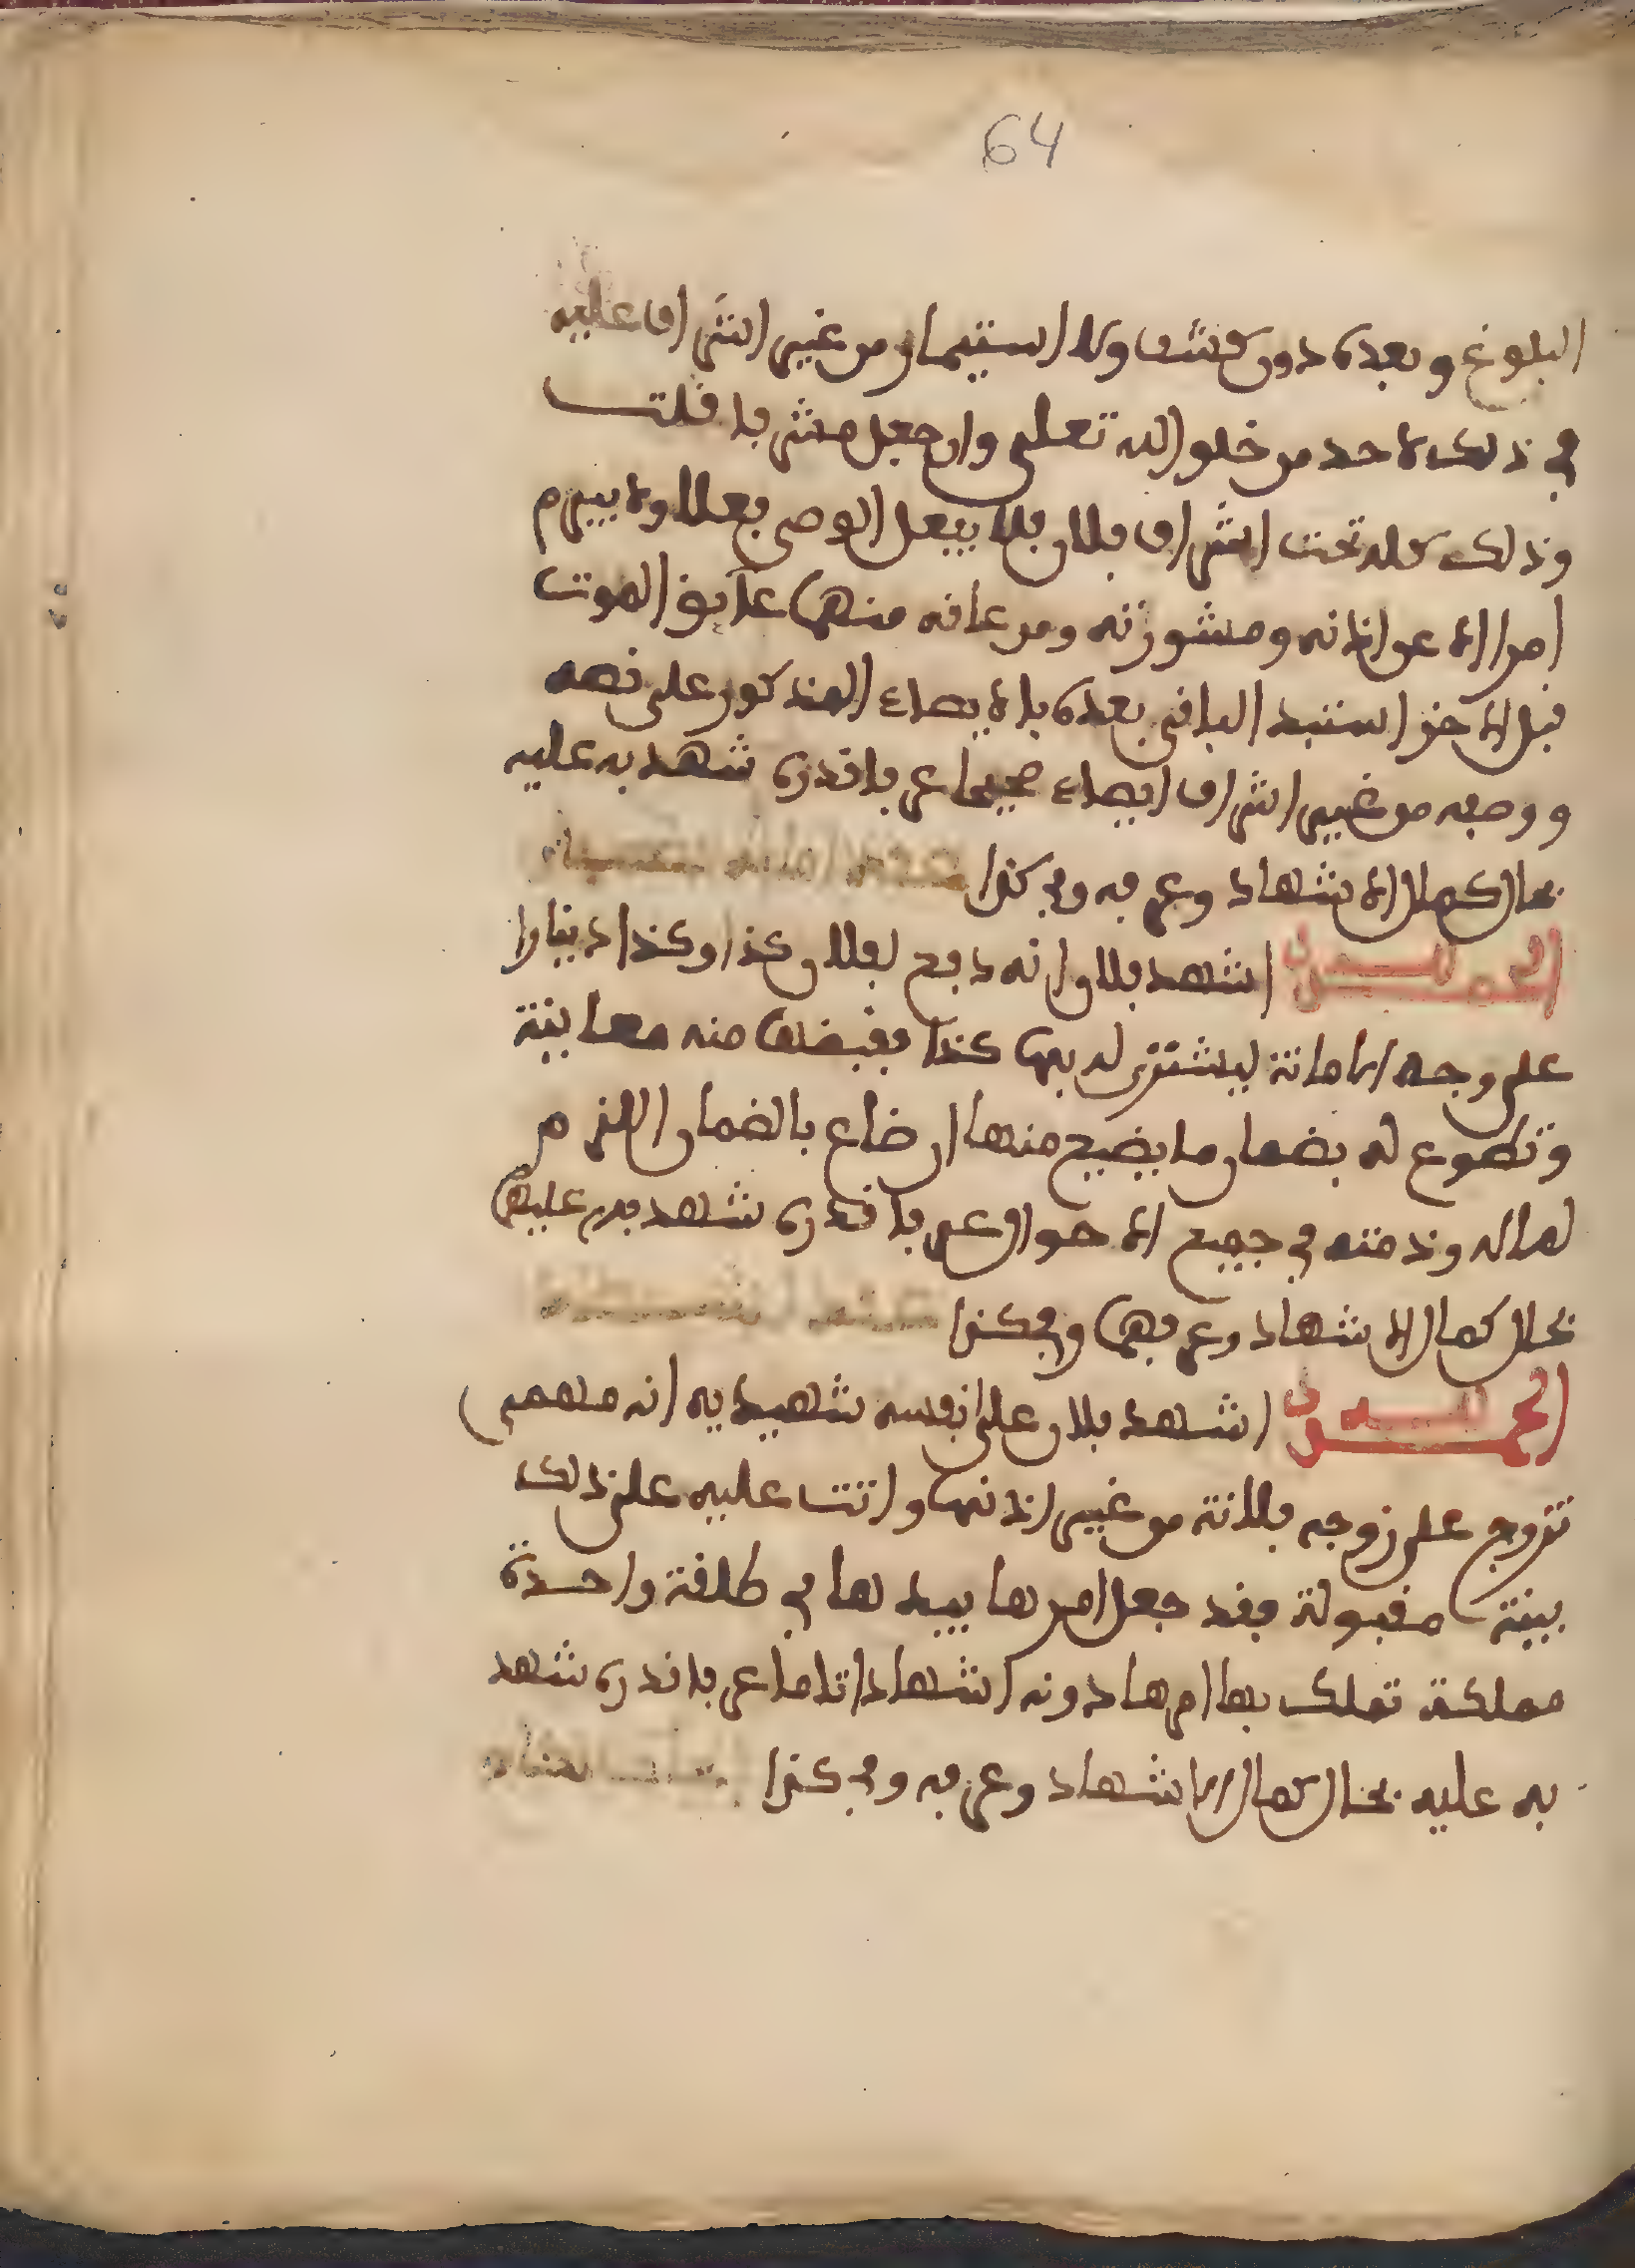 64
البلوغ وبعده دون كشف ولا استيمار من غير اشراف عليه
في ذلك لاحد من خلق الله تعلى وان جعل مشرفا قلت
وذلك كله تحت اشراف فلان فلا يفعل الوصي فعلا ولا يبرم
امرا الا عن اذنه ومشورته ومن عاقه منهما عايق الموت
قبل الاخر استبد الباقي بعده بالايصاء المذكور على نصه
ووصفه من غير اشراف ايصاء صحيحا عرفا قدره شهد به عليه
بحال كمال الاشهاد وعرفه وفي كذا
الحمد لله
اشهد فلان انه دفع لفلان كذا وكذا دينارا
على وجه الامانة ليشتري له بها كذا فقبضها منه معاينة
وتطوع له بضمان ما يضيع منها ان ضاع بالضمان اللازم
لماله وذمته في جميع الاحوال عرفا قدره شهد به عليهما
بحال كمال الاشهاد وعرفهما وفي كذا
الحمد لله
اشهد فلان على نفسه شهيديه انه مهمى
تزوج على زوجه فلانة من غير اذنها واتت عليه على ذلك
بينة مقبولة فقد جعل امرها بيدها في طلقة واحدة
مملكة تملك بها امرها دونه اشهادا تاما عرفا قدره شهد
به عليه بحال كمال الاشهاد وعرفه وفي كذا